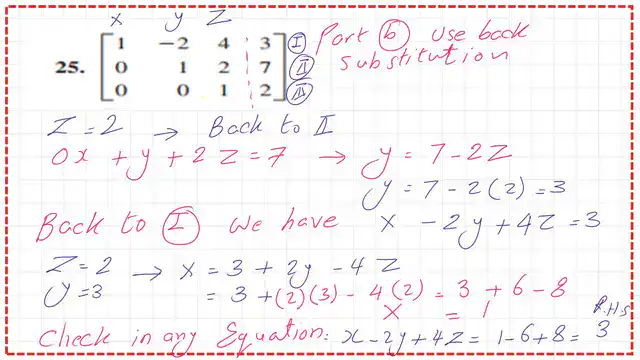 x y z
25. [1 -2 4 3] I Part b use back
[0 1 2 7] II substitution
[0 0 1 2] III
Z = 2 → Back to II
0x + y + 2Z = 7 → y = 7 - 2Z
y = 7 - 2(2) = 3
Back to I we have x - 2y + 4Z = 3
Z = 2 → x = 3 + 2y - 4Z
y = 3 = 3 + (2)(3) - 4(2) = 3 + 6 - 8
X = 1
R.H.S
Check in any Equation: x - 2y + 4Z = 1 - 6 + 8 = 3